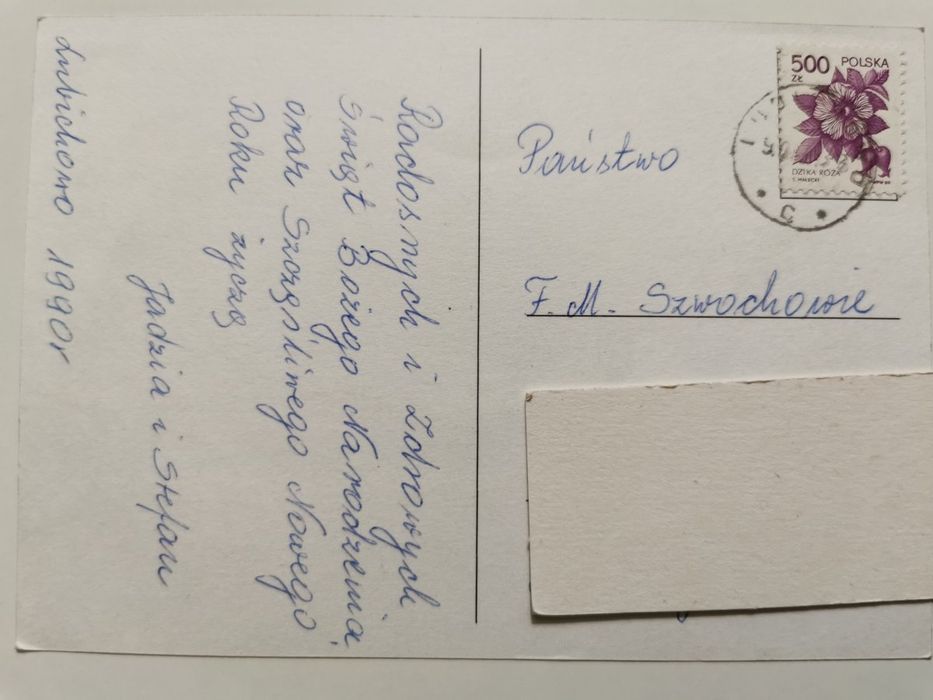 Radosnych i Zdrowych
Świąt Bożego Narodzenia,
oraz Szczęśliwego Nowego
Roku życzą
Jadzia i Stefan
Lubichowo 1990r
Państwo
F. M. Szwochowie
500 ZŁ
POLSKA
DZIKA RÓŻA
C